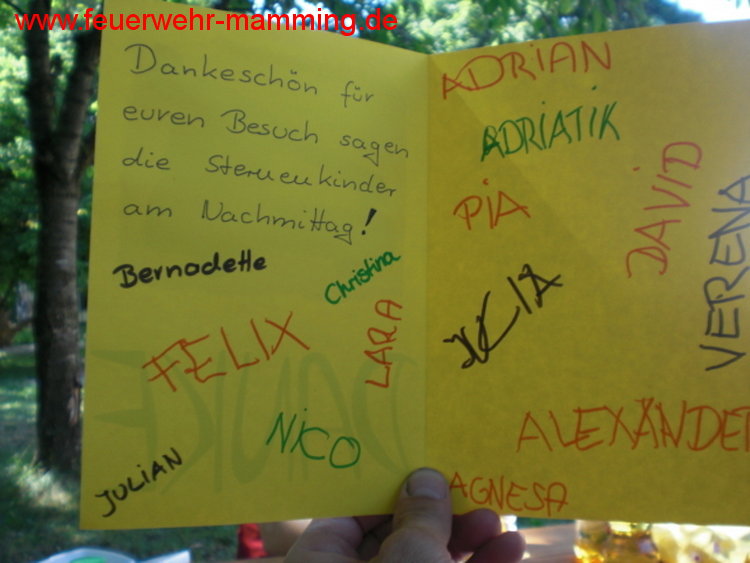 www.feuerwehr-mamming.de
Dankeschön für
euren Besuch sagen
die Sternenkinder
am Nachmittag!
Bernadette
Christina
FELIX
LARA
NICO
JULIAN
ADRIAN
ADRIATIK
PIA
DAVID
VERENA
ALEXANDER
AGNESA
DANKE